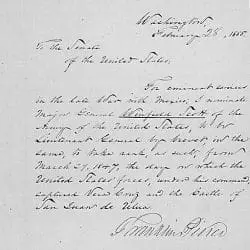 Washington,
February 28, 1855.
To the Senate
of the United States,
For eminent services
in the late War with Mexico, I nominate
Major General Winfield Scott of
the Army of the United States, to be
Lieutenant General by brevet in the
same, to take rank, as such, from
March 29, 1847, the day on which the
United States forces, under his command,
captured Vera Cruz and the Castle of
San Juan de Ulua.
Franklin Pierce